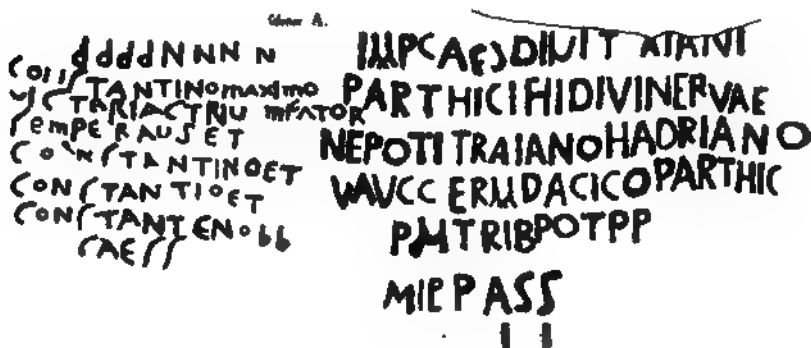 ddddNNNN
CONSTANTINOmaximo
VICTORIACTRIUmFATOR
SEMPERAUSET
CONSTANTINOET
CONSTANTIOET
CONSTANTENObb
CAESS
IMPCAESDIVIT
PARTHICIFIIDIVINERVAE
NEPOTITRAIANOHADRIANO
ERM DACICOPARTHIC
PMTRIBPOTPP
MIEPASS
II